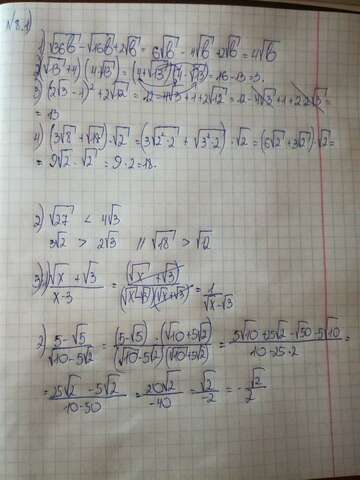 №8.1)
1) √36b - √16b + 2√b = 6√b - 4√b + 2√b = 4√b
2) (√13 + 4)(4√13) = (4+√13)(4-√13) = 16-13 = 3.
3) (2√3 - 1)² + 2√12 = 12 - 4√3 + 1 + 2√12 = 12 - 4√3 + 1 + 2·2√3 =
= 13
4) (3√8 + √18)·√2 = (3√2²·2 + √3²·2)·√2 = (6√2 + 3√2)·√2 =
= 9√2 · √2 = 9·2 = 18.
2) √27 < 4√3
3√2 > 2√3 // √18 > √12
3) 1) (√x + √3)/(x-3) = (√x + √3)/((√x-√3)(√x+√3)) = 1/(√x-√3)
2) (5-√5)/(√10-5√2) = (5-√5)·(√10+5√2)/((√10-5√2)(√10+5√2)) = (5√10+25√2-√50-5√10)/(10-25·2) =
= (25√2-5√2)/(10-50) = 20√2/-40 = √2/-2 = -√2/2